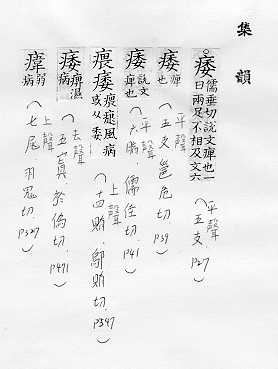 集韻
痿 儒垂切說文痹也一
曰兩足不相及文六
（平聲 五支 P27）
痿 痹也
（平聲 五支 邕危切 P39）
痿 說文
痹也
（平聲 六脂 儒隹切 P41）
痿 瘣瘣風病
或从委
（上聲 十四賄 鄔賄切 P347）
痿 痹濕
病
（去聲 五寘 於偽切 P471）
瘒 弱
病
（上聲 七尾 羽鬼切 P327）